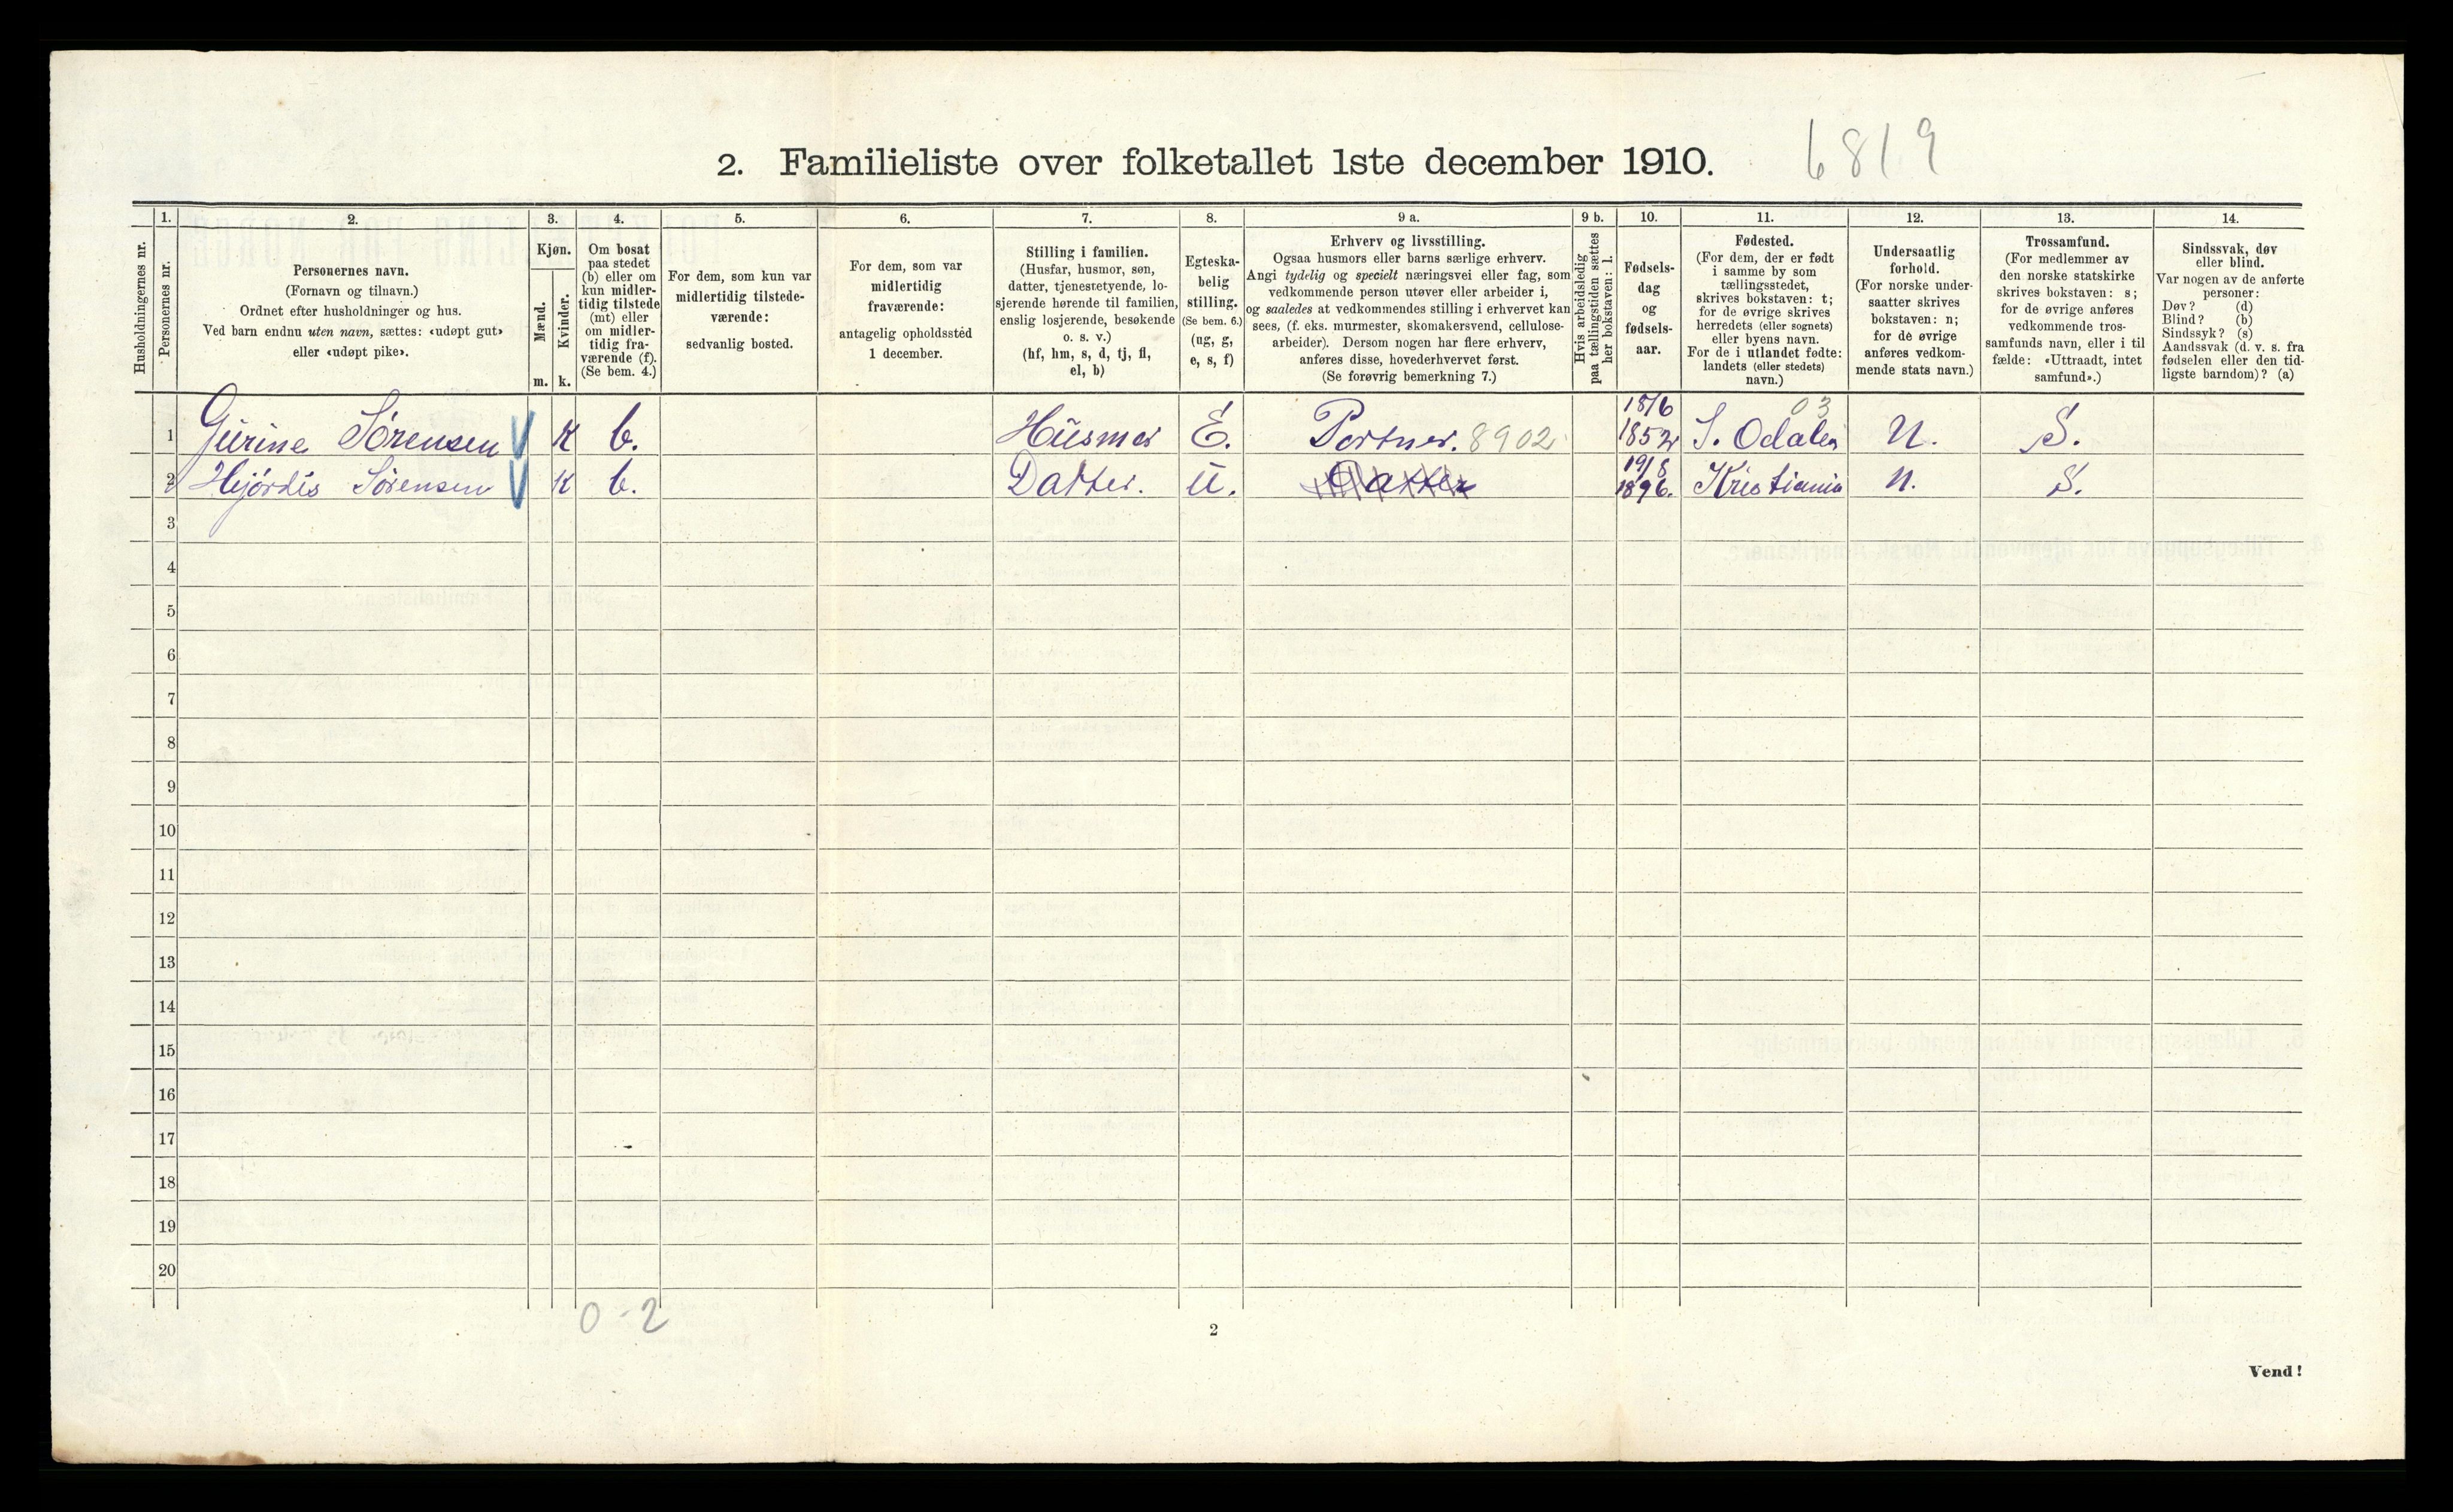 2. Familieliste over folketallet 1ste december 1910. 6819
Husholdningernes nr.
1.
Personernes nr.
2.
Personernes navn.
(Fornavn og tilnavn.)
Ordnet efter husholdninger og hus.
Ved barn endnu uten navn, sættes: «udøpt gut»
eller «udøpt pike».
3.
Kjøn.
Mænd.
Kvinder.
m. k.
4.
Om bosat
paa stedet
(b) eller om
kun midler-
tidig tilstede
(mt) eller
om midler-
tidig fra-
værende (f).
(Se bem. 4.)
5.
For dem, som kun var
midlertidig tilstede-
værende:
sedvanlig bosted.
6.
For dem, som var
midlertidig
fraværende:
antagelig opholdssted
1 december.
7.
Stilling i familien.
(Husfar, husmor, søn,
datter, tjenestetyende, lo-
sjerende hørende til familien,
enslig losjerende, besøkende
o. s. v.)
(hf, hm, s, d, tj, fl,
el, b)
8.
Egteska-
belig
stilling.
(Se bem. 6.)
(ug, g,
e, s, f)
9 a.
Erhverv og livsstilling.
Ogsaa husmors eller barns særlige erhverv.
Angi tydelig og specielt næringsvei eller fag, som
vedkommende person utøver eller arbeider i,
og saaledes at vedkommendes stilling i erhvervet kan
sees, (f. eks. murmester, skomakersvend, cellulose-
arbeider). Dersom nogen har flere erhverv,
anføres disse, hovederhvervet først.
(Se forøvrig bemerkning 7.)
9 b.
Hvis arbeidsledig
paa tællingstiden sættes
her bokstaven: l.
10.
Fødsels-
dag
og
fødsels-
aar.
11.
Fødested.
(For dem, der er født
i samme by som
tællingsstedet,
skrives bokstaven: t;
for de øvrige skrives
herredets (eller sognets)
eller byens navn.
For de i utlandet fødte:
landets (eller stedets)
navn.)
12.
Undersaatlig
forhold.
(For norske under-
saatter skrives
bokstaven: n;
for de øvrige
anføres vedkom-
mende stats navn.)
13.
Trossamfund.
(For medlemmer av
den norske statskirke
skrives bokstaven: s;
for de øvrige anføres
vedkommende tros-
samfunds navn, eller i til
fælde: «Uttraadt, intet
samfund».)
14.
Sindssvak, døv
eller blind.
Var nogen av de anførte
personer:
Døv? (d)
Blind? (b)
Sindssyk? (s)
Aandssvak (d. v. s. fra
fødselen eller den tid-
ligste barndom)? (a)
1 Gurine Sørensen K b. Husmor E. Portner. 8902 18/6 1852 S. Odalen 03 N. S.
2 Hjørdis Sørensen K b. Datter. U. Datter 19/8 1896. Kristiania N. S.
3
4
5
6
7
8
9
10
11
12
13
14
15
16
17
18
19
20
0-2
2
Vend!